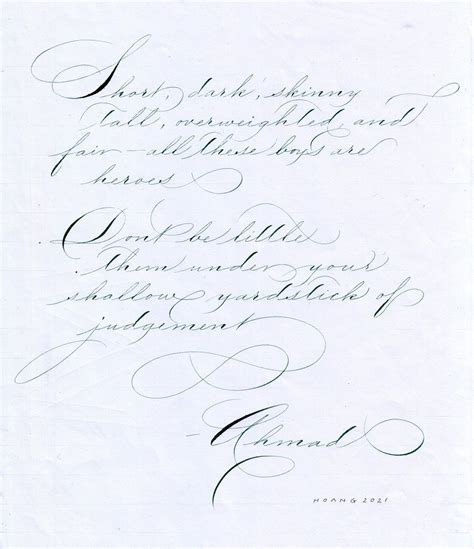 Short, dark, skinny
tall, overweighted, and
fair - all these boys are
heroes
Dont be little
them under your
shallow yardstick of
judgement
- Ahmad
HOANG 2021